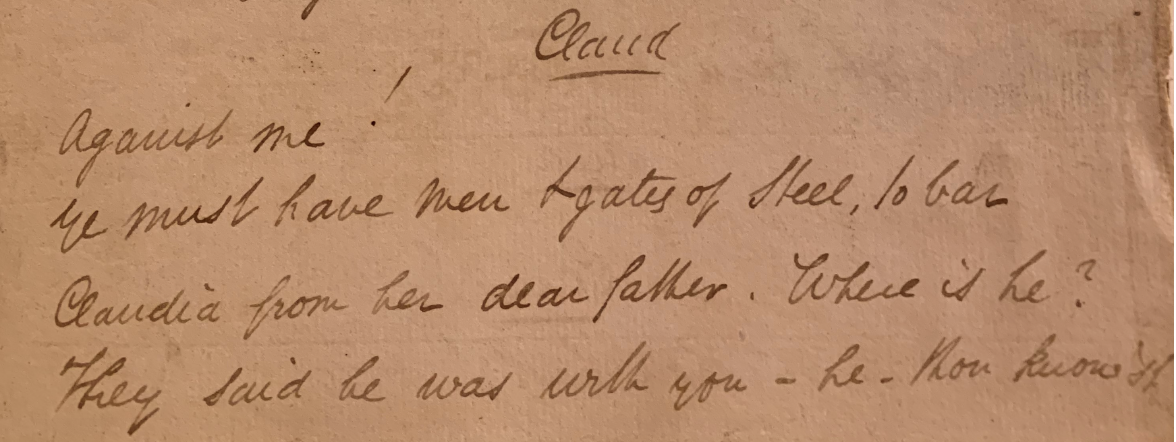 Claud
Against me!
Ye must have men & gates of Steel, to bar
Claudia from her dear father. Where is he?
They said he was with you - he - thou know'st